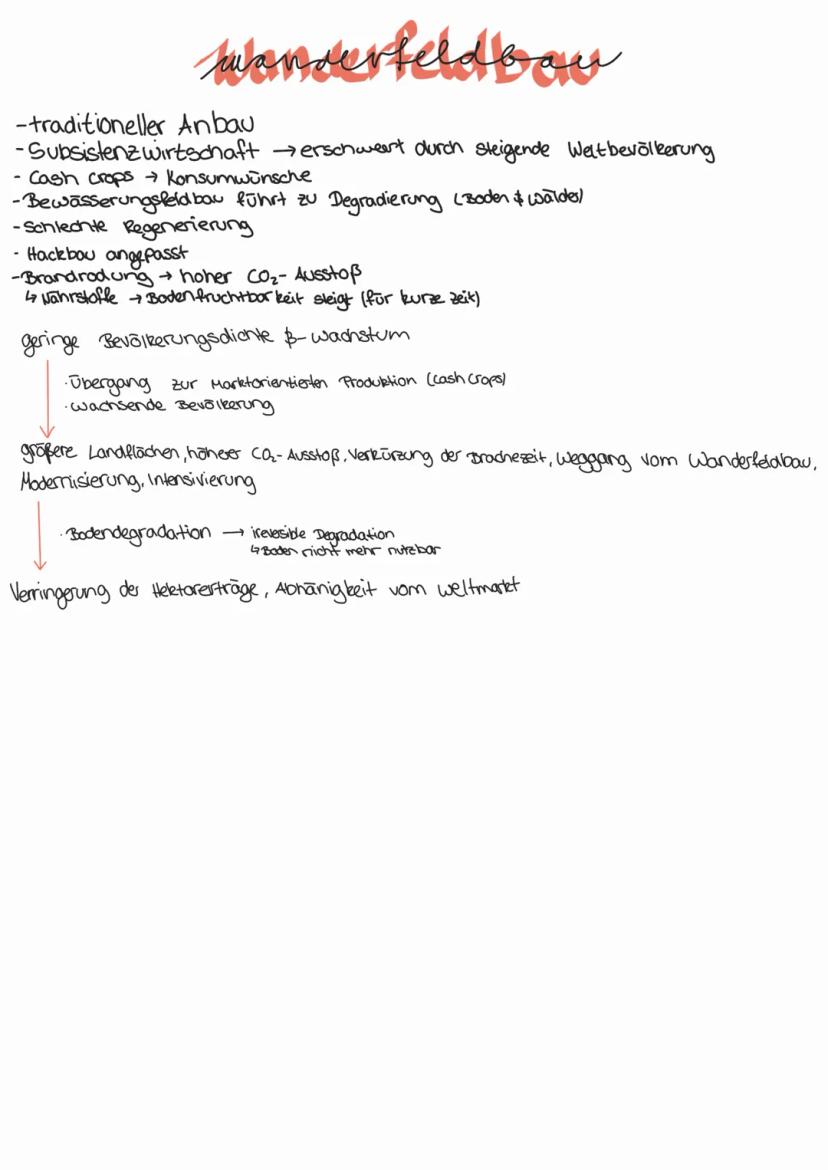 wanderfeldbau
-traditioneller Anbau
-Subsistenzwirtschaft → erschwert durch steigende Weltbevölkerung
- Cash crops → Konsumwünsche
-Bewässerungsfeldbau führt zu Degradierung (Boden & Wälder)
-Schlechte Regenerierung
- Hackbau angepasst
-Brandrodung → hoher CO₂-Ausstoß
↳ Nährstoffe → Bodenfruchtbarkeit steigt (für kurze Zeit)
geringe Bevölkerungsdichte & -wachstum
· Übergang zur Marktorientierten Produktion (Cash Crops)
· wachsende Bevölkerung
größere Landflächen, höherer CO₂-Ausstoß, Verkürzung der Brachezeit, Weggang vom Wanderfeldbau,
Modernisierung, Intensivierung
· Bodendegradation → irevesible Degradation
↳ Boden nicht mehr nutzbar
Verringerung der Hektarerträge, Abhänigkeit vom Weltmarkt